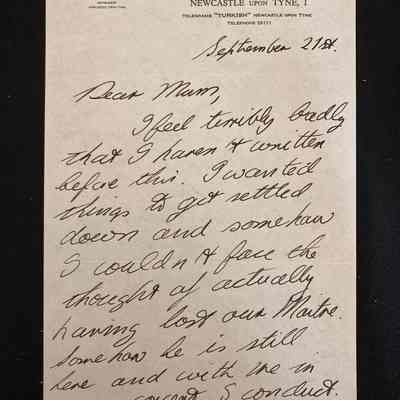 NEWCASTLE UPON TYNE, 1
TELEGRAMS "TURKISH" NEWCASTLE UPON TYNE
TELEPHONE 25111
September 21st.
Dear Mum,
I feel terribly badly
that I haven't written
before this. I wanted
things to get settled
down and somehow
I couldn't face the
thought of actually
having lost our Maitre.
Somehow he is still
here and with me in
concert I conduct.